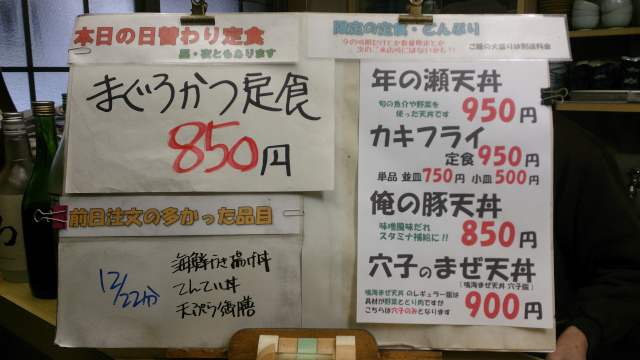 本日の日替わり定食
昼・夜ともあります
まぐろかつ定食
850円
前日注文の多かった品目
12/22から
海鮮かき揚げ丼
てんてい丼
天ぷら御膳
限定の定食・どんぶり
ご飯の大盛りは別途料金
年の瀬天丼
旬の魚介や野菜を
使った天丼です
950円
カキフライ
定食950円
単品 並皿750円 小皿500円
俺の豚天丼
味噌風味だれ
スタミナ補給に!!
850円
穴子のまぜ天丼
(鳴海まぜ天丼 穴子版)
鳴海まぜ天丼 のレギュラー版は
具材が野菜ととり肉ですが
こちらは穴子のみとなります
900円